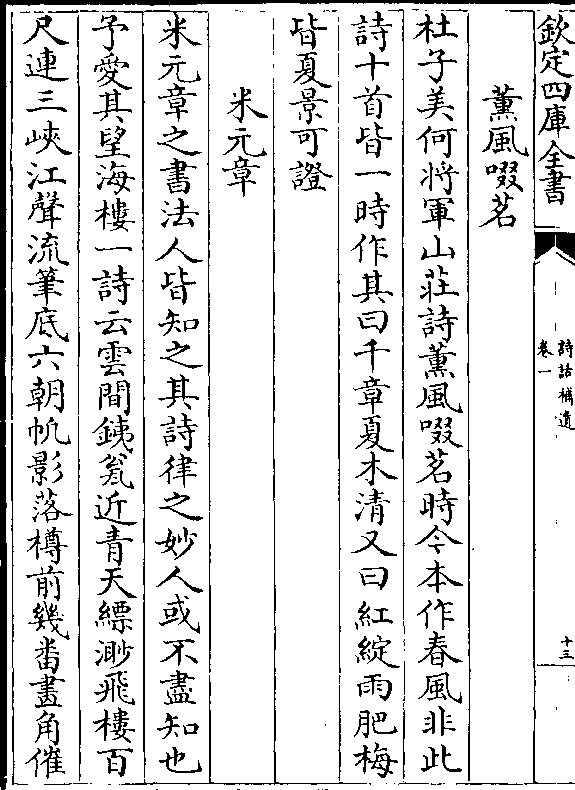 欽定四庫全書
詩話補遺
卷一
十三
薰風啜茗
杜子美何將軍山莊詩薰風啜茗時今本作春風非此
詩十首皆一時作其曰千章夏木清又曰紅綻雨肥梅
皆夏景可證
米元章
米元章之書法人皆知之其詩律之妙人或不盡知也
予愛其望海樓一詩云雲間鐵瓮近青天縹渺飛樓百
尺連三峽江聲流筆底六朝帆影落樽前幾番畫角催